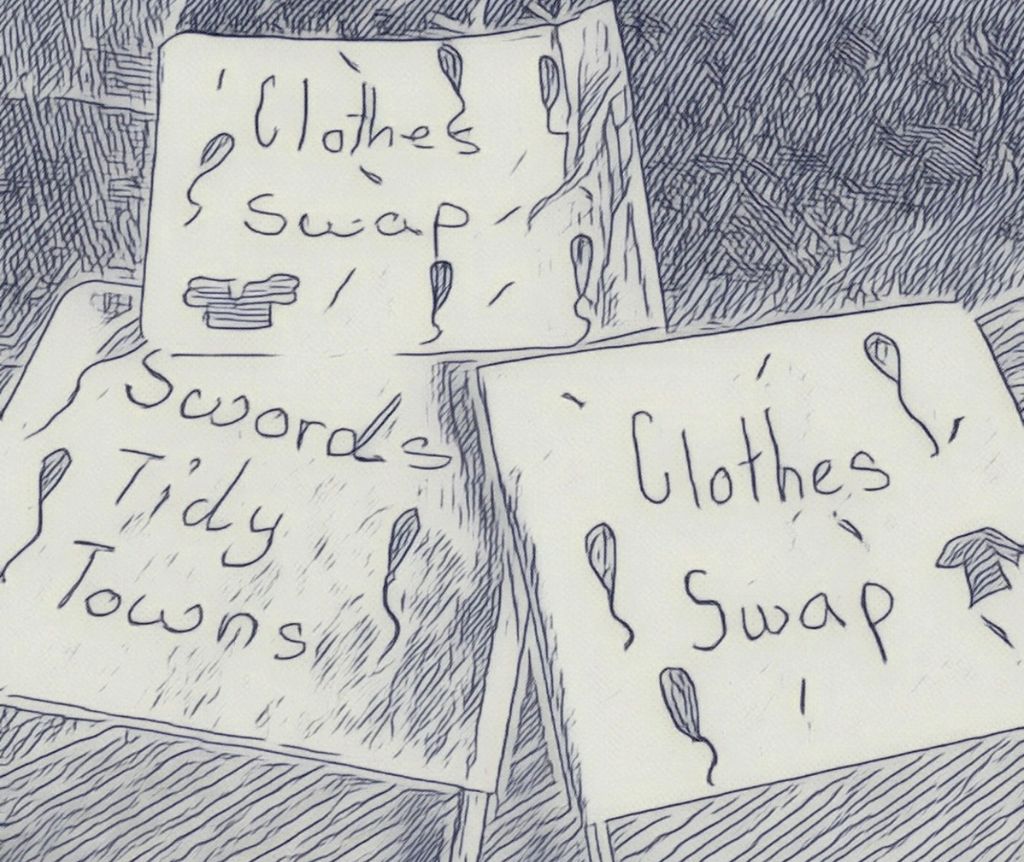 Clothes
Swap
Swords
Tidy
Towns
Clothes
Swap